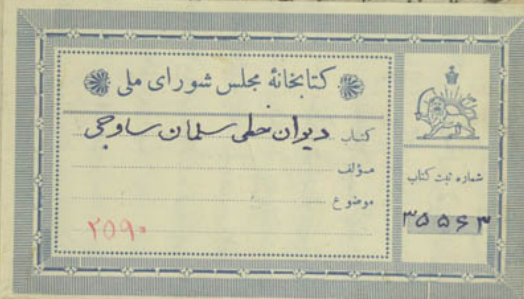 کتابخانهٔ مجلس شورای ملی
کتاب دیوان خطی سلمان ساوجی
مؤلف
موضوع
۲۵۹۰
شماره ثبت کتاب
۳۵۵۶۳